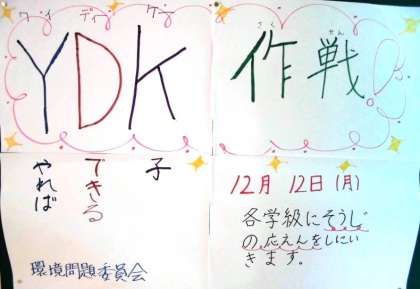 ワイ ディー ケー
YDK
さく せん
作戦!
やれば
できる
子
環境問題委員会
12月 12日(月)
各学級にそうじ
の応えんをしにい
きます。